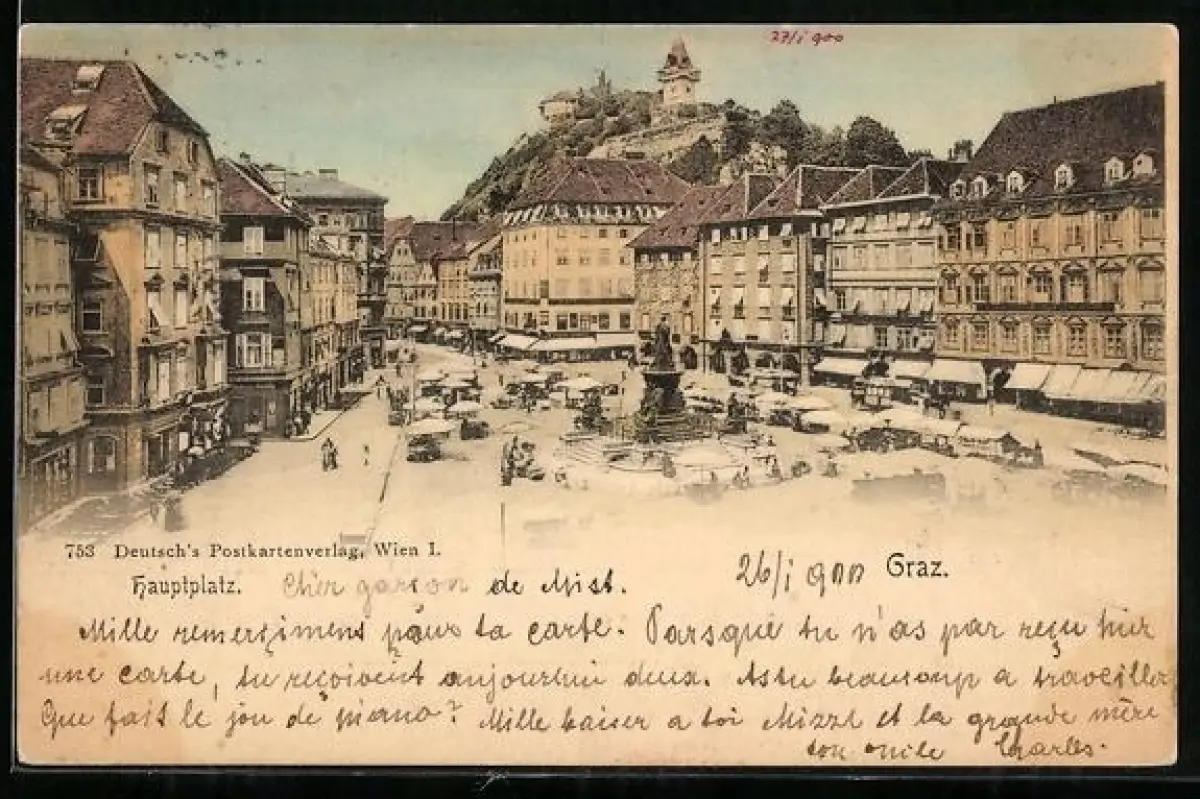 27/I 900
753 Deutsch's Postkartenverlag, Wien I.
Hauptplatz. Cher garson de Mist. 26/I 900 Graz.
Mille remerçimens pour ta carte. Parsque tu n'as par reçu hier
une carte, tu reçoivent aujourhui deux. Astu beaucoup a travailler
Que fait le jou de piano? Mille baiser a toi Mizzi et la grande mère
ton oncle Charles.